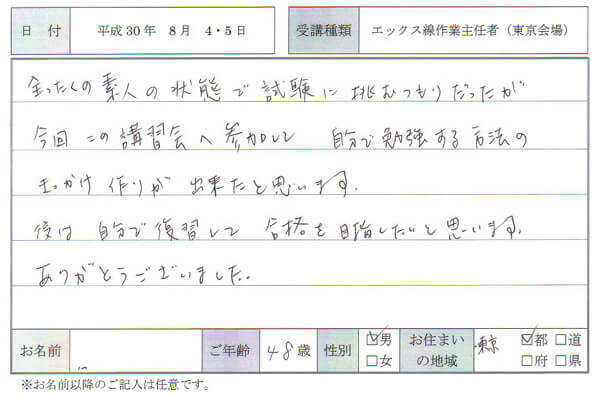 日 付 平成30年 8月 4・5日 受講種類 エックス線作業主任者（東京会場）
全ったくの素人の状態で試験に挑むつもりだったが
今回この講習会へ参加して 自分で勉強する方法の
きっかけ作りが出来たと思います。
後は自分で復習して 合格を目指したいと思います。
ありがとうございました。
お名前 ご年齢 48歳 性別 ☑男 □女 お住まいの地域 東京 ☑都 □道 □府 □県
※お名前以降のご記入は任意です。